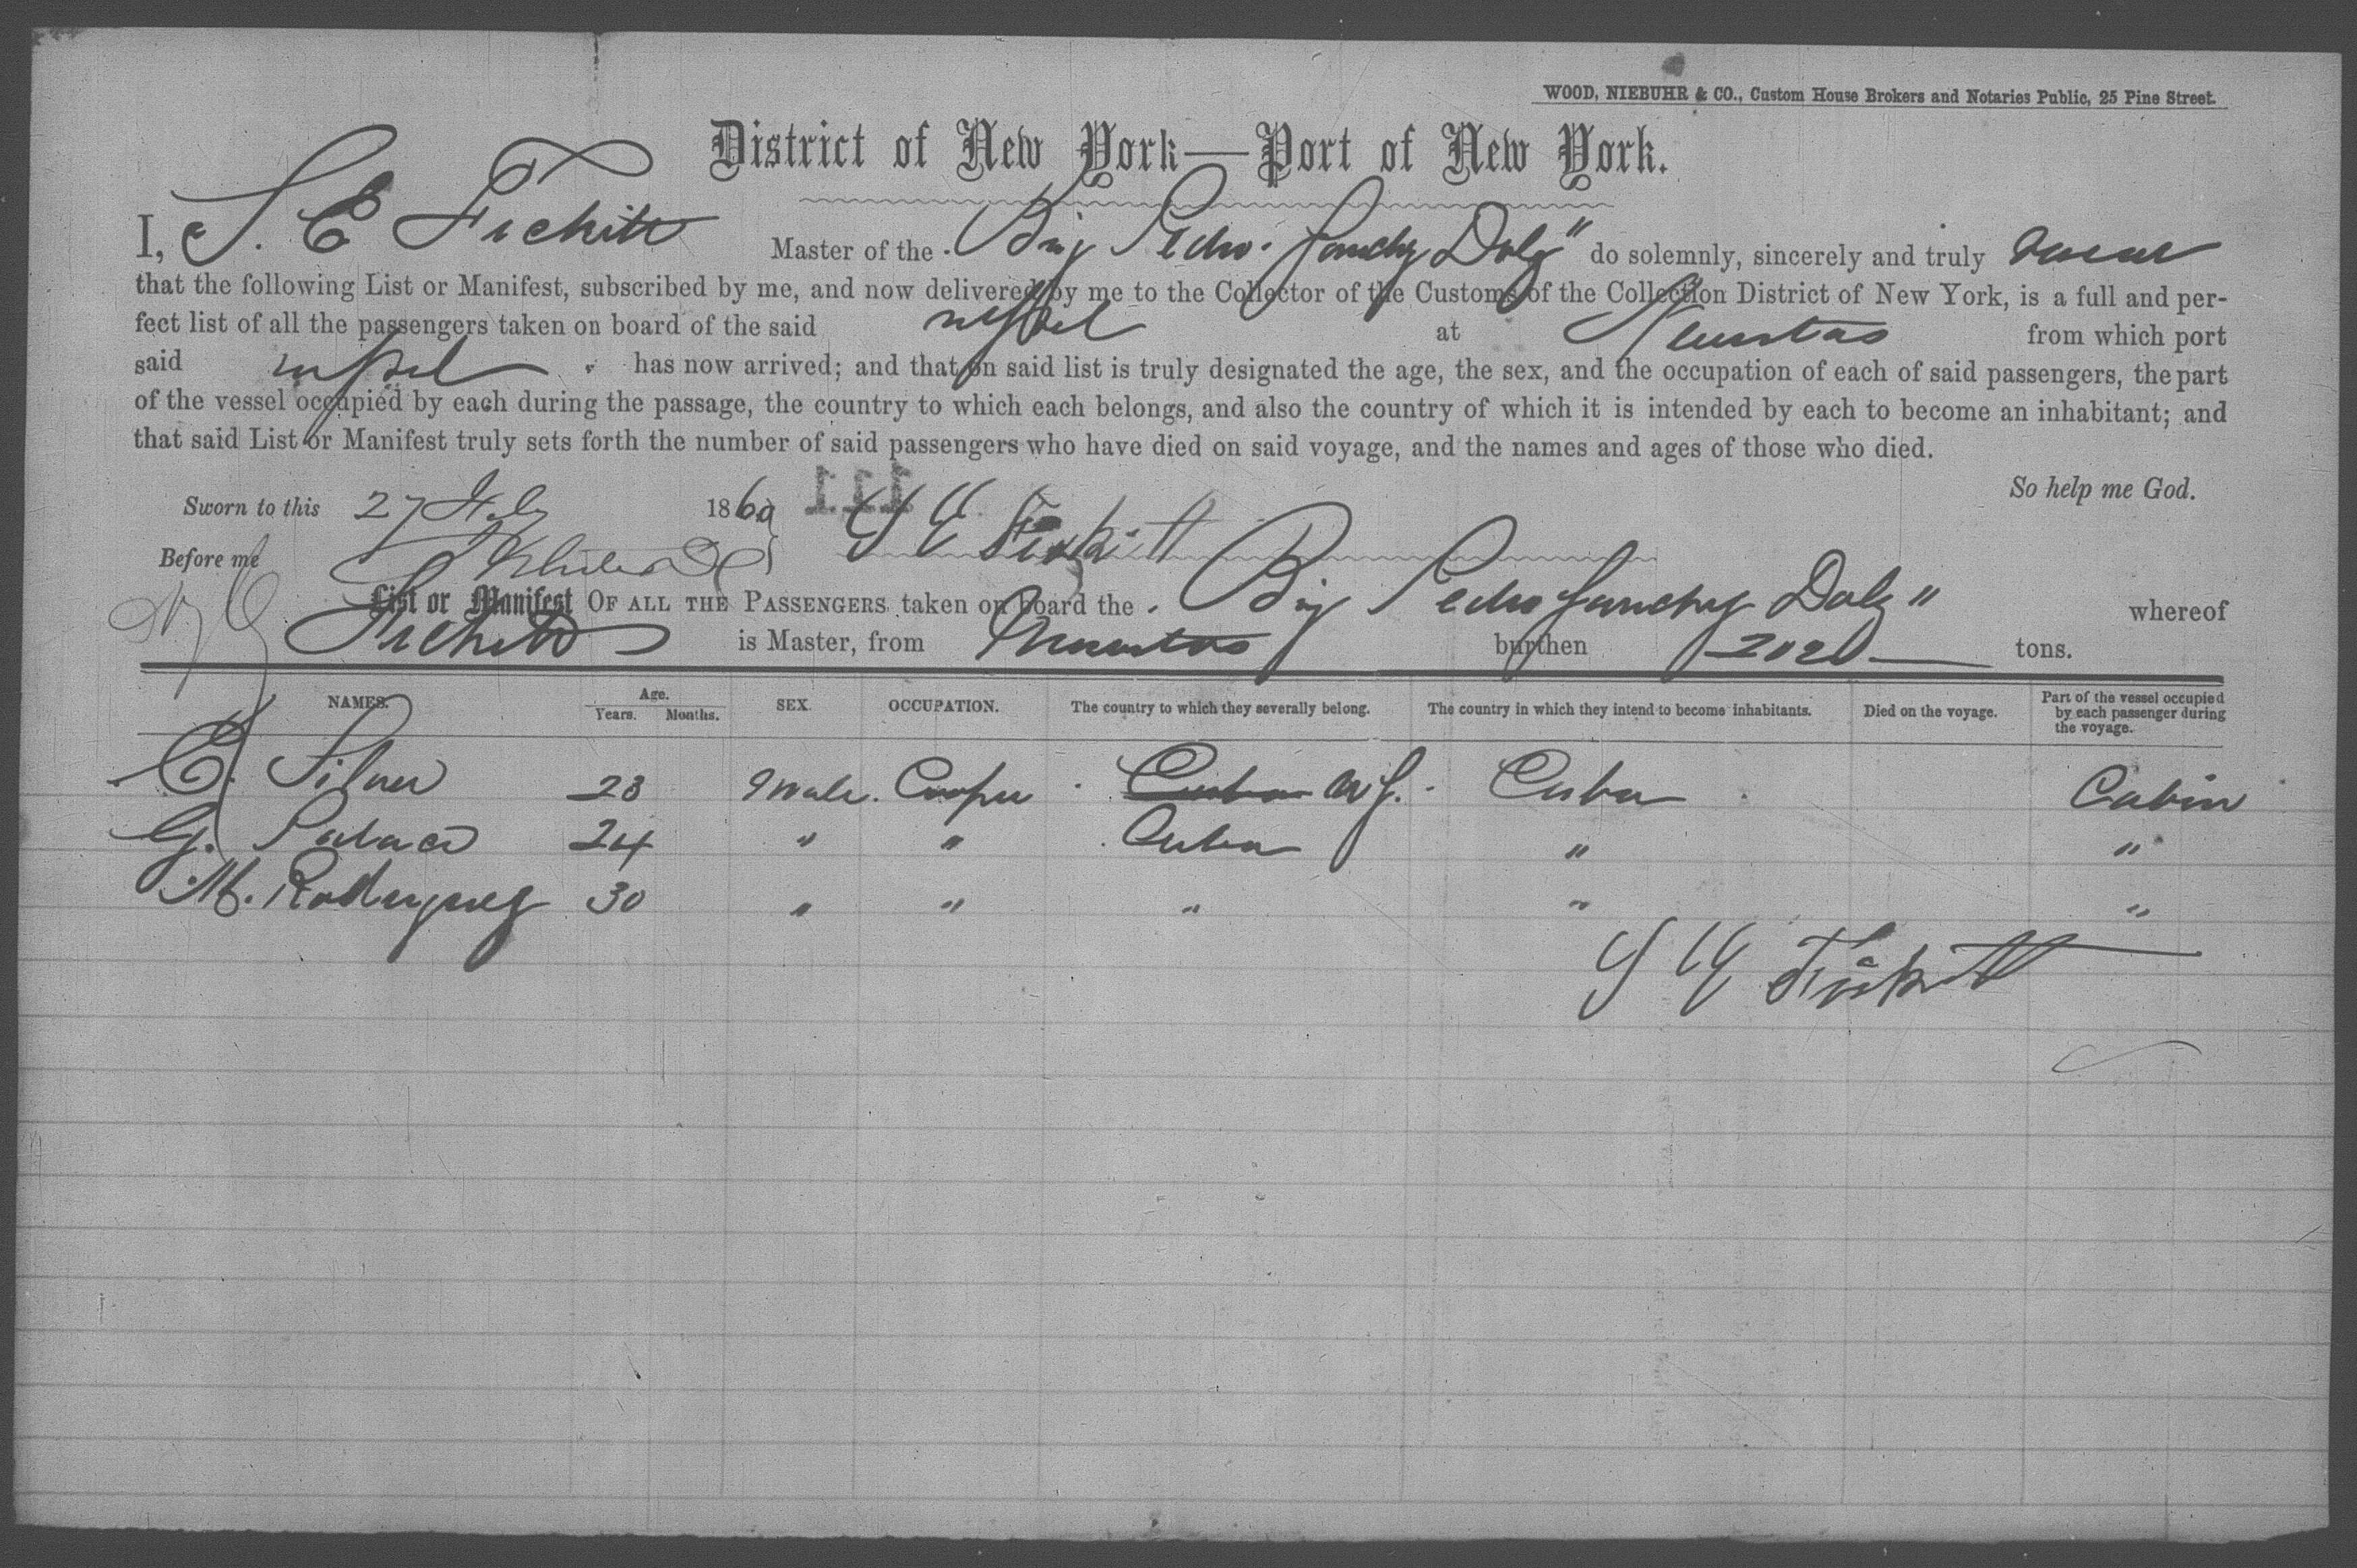 WOOD, NIEBUHR & CO., Custom House Brokers and Notaries Public, 25 Pine Street.
District of New York—Port of New York.
I, S. E. Fickett Master of the Brig Pedro Sanchez Dolz" do solemnly, sincerely and truly swear
that the following List or Manifest, subscribed by me, and now delivered by me to the Collector of the Customs of the Collection District of New York, is a full and per-
fect list of all the passengers taken on board of the said vessel at from which port
said vessel has now arrived; and that on said list is truly designated the age, the sex, and the occupation of each of said passengers, the part
of the vessel occupied by each during the passage, the country to which each belongs, and also the country of which it is intended by each to become an inhabitant; and
that said List or Manifest truly sets forth the number of said passengers who have died on said voyage, and the names and ages of those who died.
So help me God.
Sworn to this 27 1869 111 S E Fickett
Before me
List or Manifest OF ALL THE PASSENGERS taken on board the Brig Pedro Sanchez Dolz" whereof
Fickett is Master, from burthen tons.
NAMES. Age. Years. Months. SEX. OCCUPATION. The country to which they severally belong. The country in which they intend to become inhabitants. Died on the voyage. Part of the vessel occupied by each passenger during the voyage.
23 Male. Cooper Cuba Cuba Cabin
G. 24 " " Cuba " "
M. Rodriguez 30 " " " " "
S E Fickett